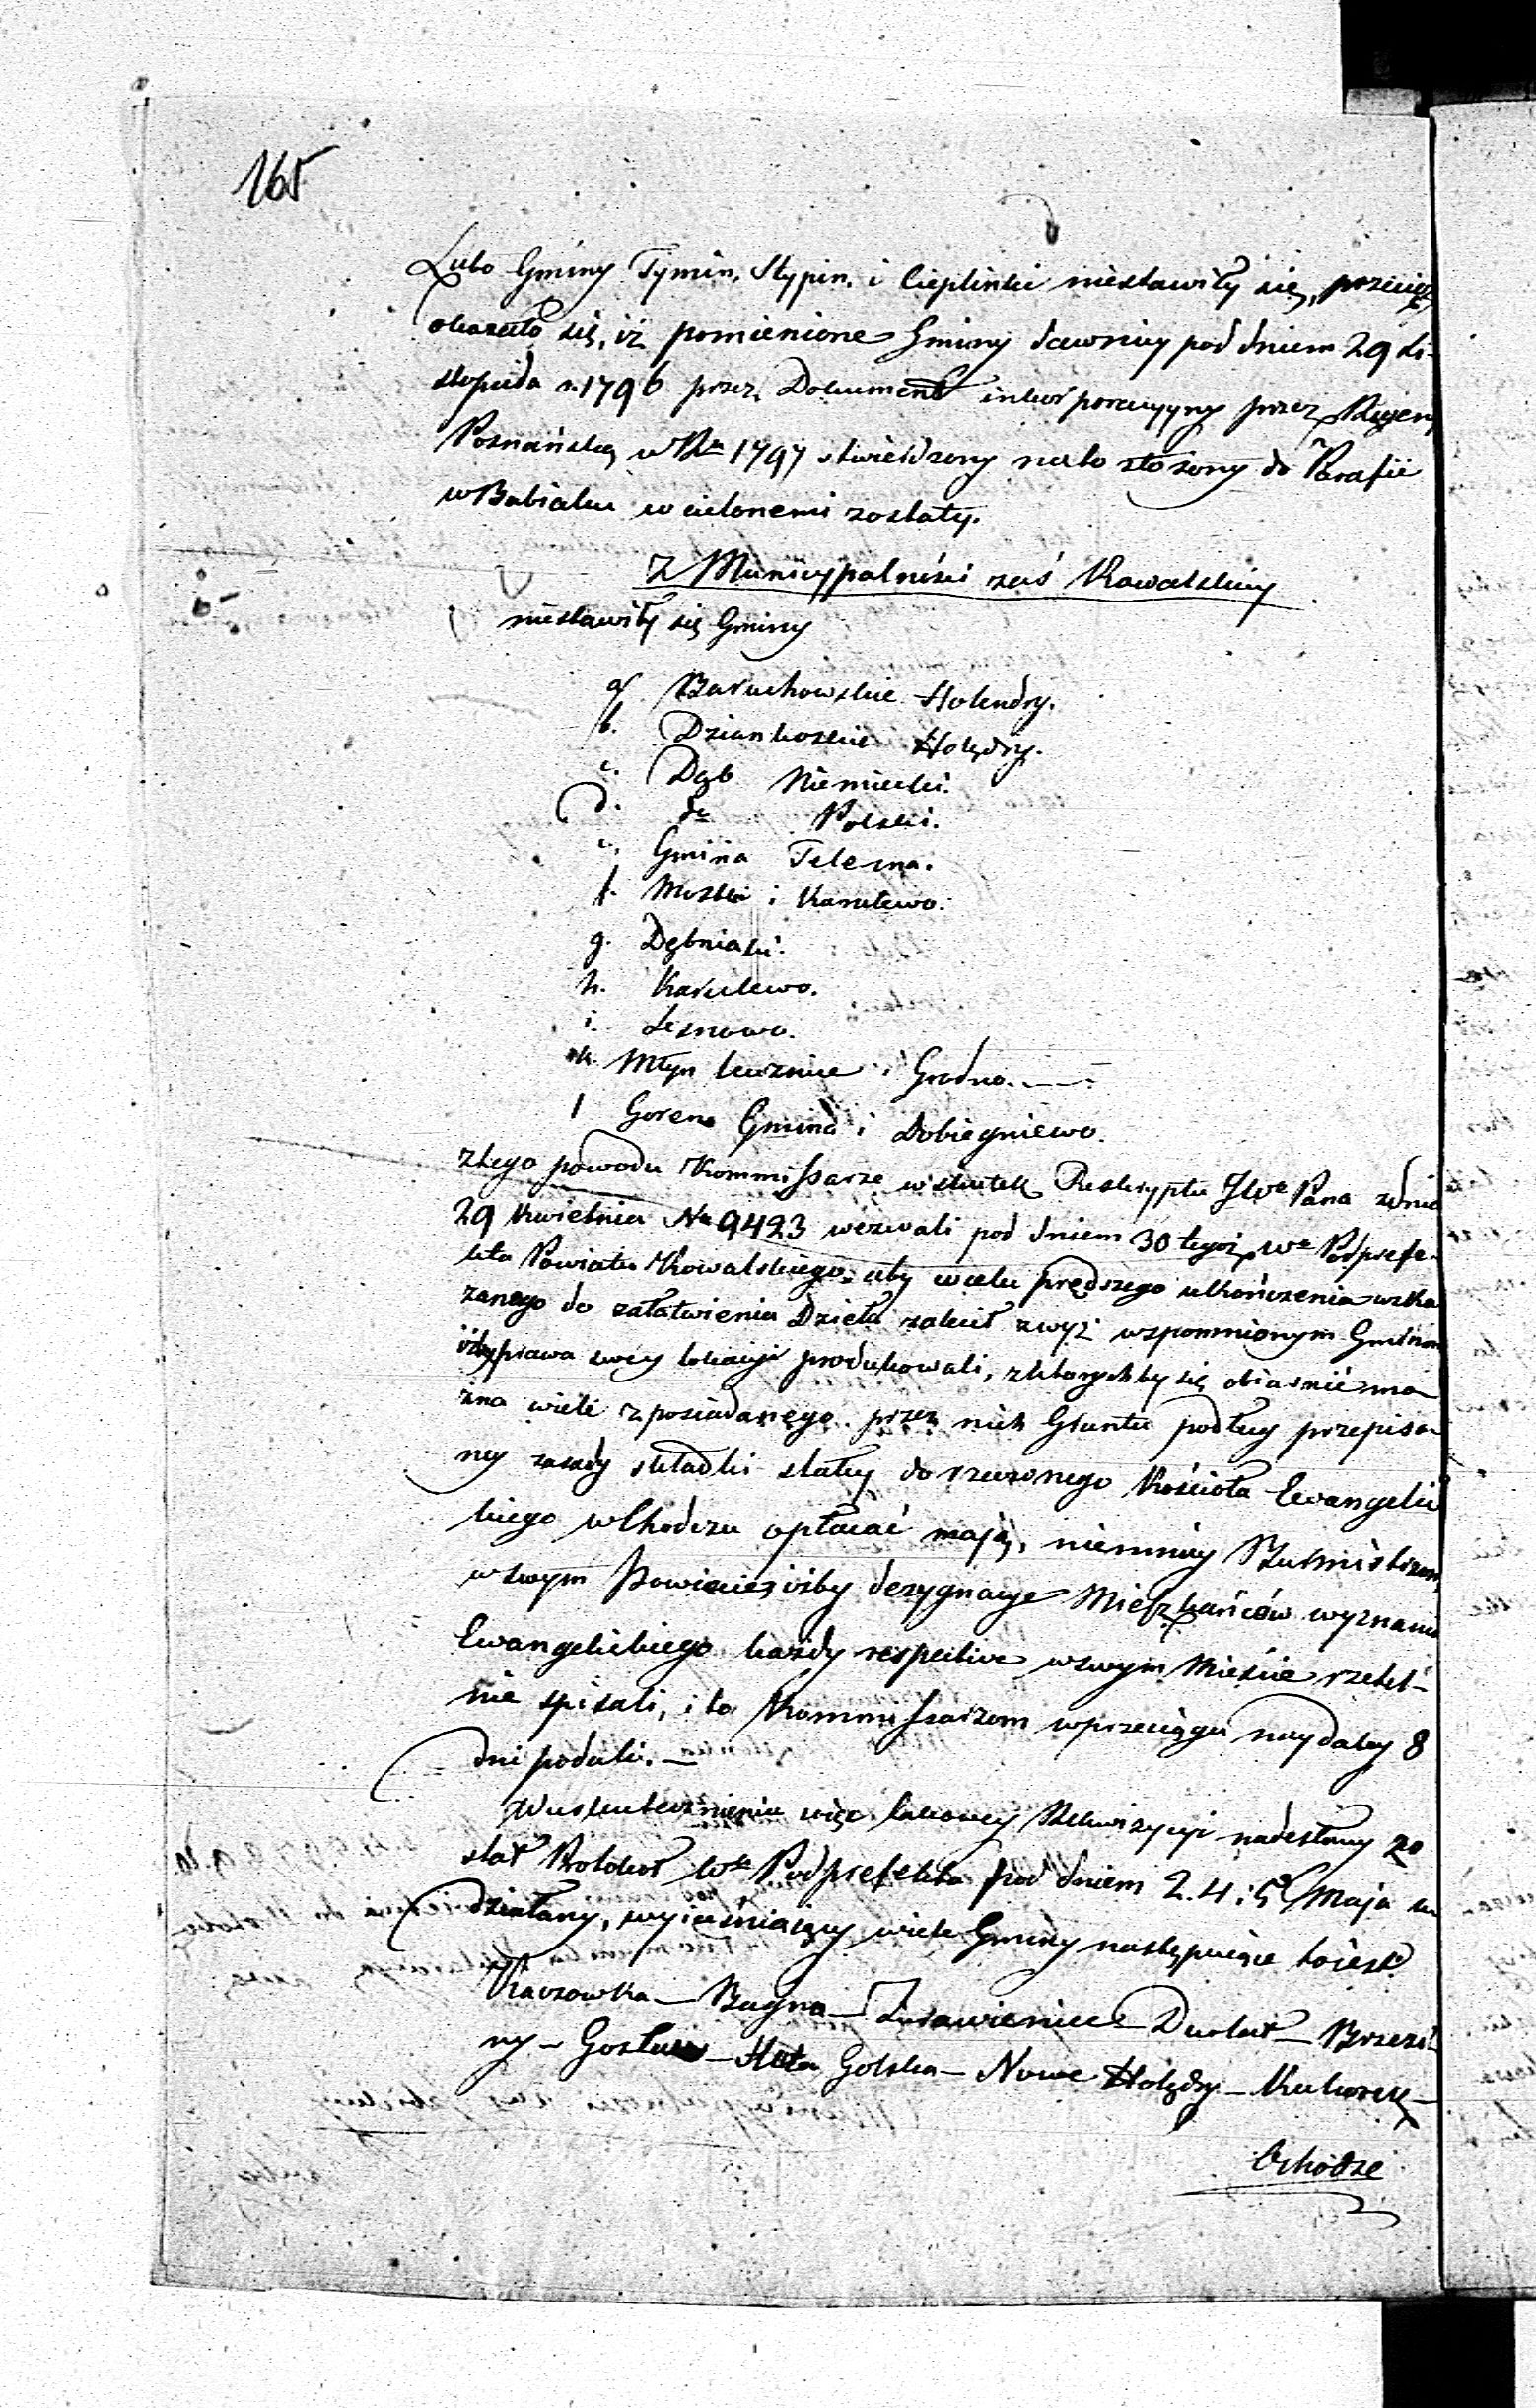 165
Lubo Gminy Tymin, Slypin, i Cieplinki niestawiły się, przecież
okazało się, iż pomienione Gminy dawniey pod dniem 29 Li-
stopada r. 1796 przez Dokument inkorporacyiny przez Regen.
Poznańską w Ru 1797 stwierdzony na to złożony do Parafii
w Babiaku wcielonemi zostały.
Z Municypalności zaś Kowalskiey
niestawiły się Gminy
a. Baruchowskie Holendry.
b. Dziankoskie Holędry.
c. Dąb Niemiecki.
d. do Polski.
e. Gmina Telezna.
f. Mostki i Karulewo.
g. Dębniaki.
h. Karulewo.
i. Leznowo.
k. Młyn Kuźnice i Grodno.
l Goren Gmina i Dobiegniewo.
z tego powodu Kommissarze w skutek Reskryptu JWo Pana z dnia
29 Kwietnia No 9423 wezwali pod dniem 30 tegoż Wo Podprefe-
kta Powiatu Kowalskiego, aby w celu prędszego ukończenia wska
zanego do załatwienia Dzieła zalecił zwyż wspomnionym Gminom
iżby prawa swey lokacyi produkowali, z których by się obiaśnić mo
żna wiele z posiadanego przez nich Gruntu podług przepisa-
ney zasady składki stałey do rzeczonego Kościoła Ewangelic
kiego w Chodczu opłacać mają, niemniey Burmistrzom
w swym Powiecie, iżby dezygnacye Mieszkańców wyznania
Ewangelickiego każdy respective w swym Mieście rzetel-
nie spisali, i to Kommissarzom w przeciągu naydaley 8
dni podali. —
W uskutecznieniu więc takowey Rekwizycyi nadesłany zo
stał Protokoł Wo Podprefekta pod dniem 2. 4. i 5o Maja
działany, wyiaśniaiący wiele Gminy następuiące to iest
Kaczowka — Bagna — Żurawieniec — Duclat — Brzezi-
ny — Gosław — Huta Golska — Nowe Holędry — Kukorek —
Ochodze